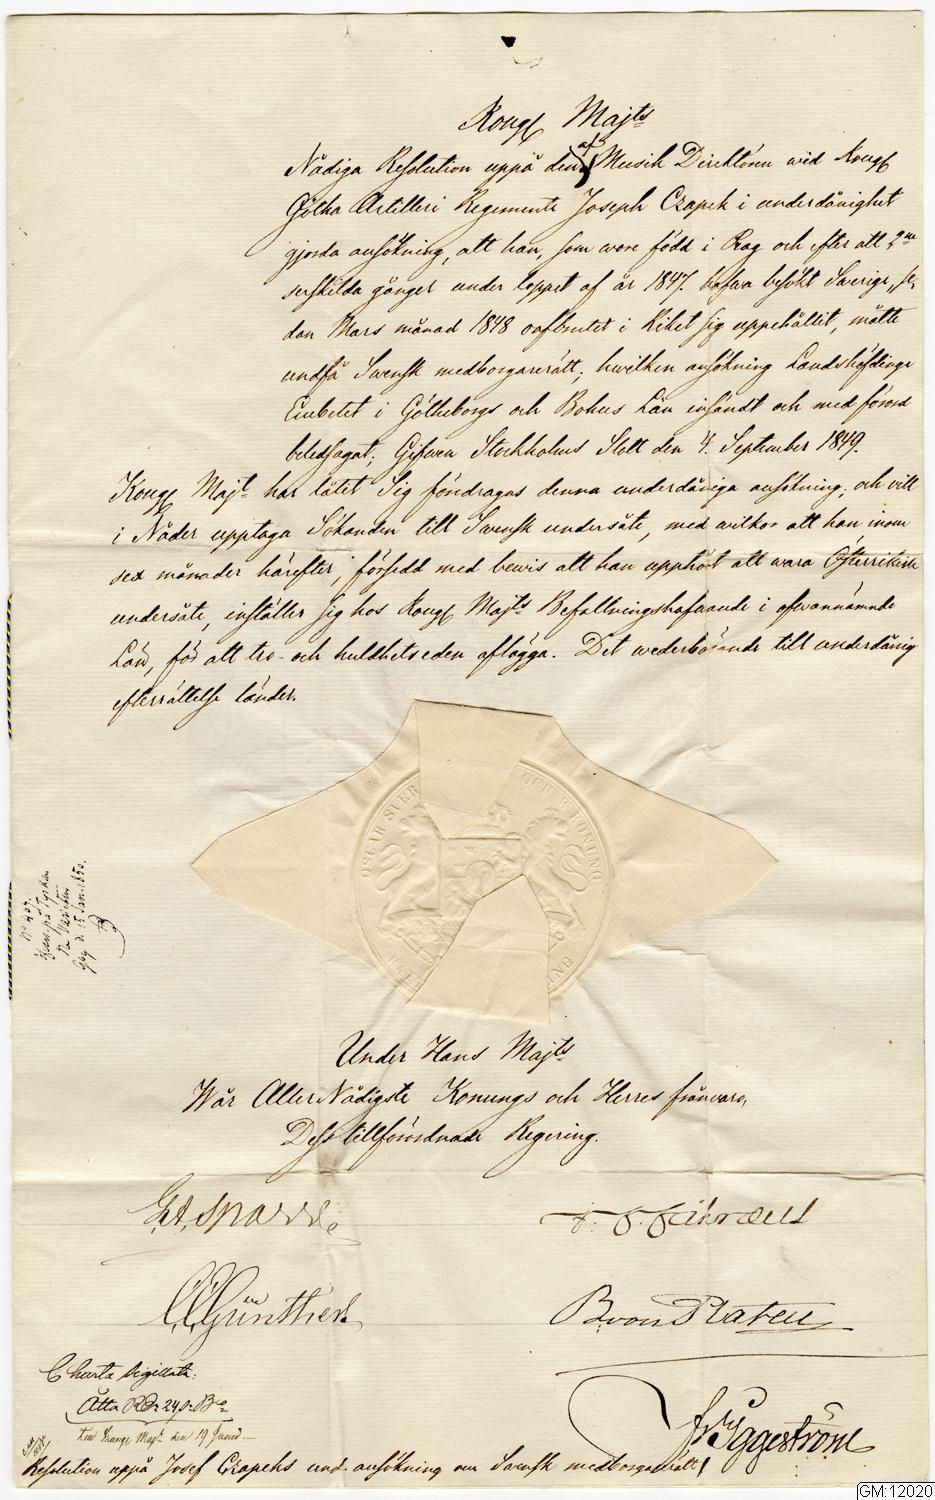 Kongl Majts
Nådiga Resolution uppå den af Musik Direktören wid Kongl
Götha Artilleri Regemente Joseph Czapek i underdånighet
gjorda ansökning, att han, som wore född i Prag och efter att 2ne
serskilda gånger under loppet af år 1847 hafwa besökt Swerige, se-
dan Mars månad 1848 oafbrutet i Riket sig uppehållit, måtte
undfå Swensk medborgarerätt; hwilken ansökning Landshöfdinge
Embetet i Götheborgs och Bohus Län insändt och med förord
beledsagat; Gifwen Stockholms Slott den 4. September 1849.
Kongl Majt har låtit Sig föredragas denna underdåniga ansökning; och vill
i Nåder upptaga Sökanden till Swensk undersåte, med wilkor att han inom
sex månader härefter, försedd med bewis att han upphört att wara Österrikisk
undersåte, inställer sig hos Kongl Majts Befallningshafwande i ofwannämnde
Län, för att tro- och huldhetseden aflägga. Det wederbörande till underdånig
efterrättelse länder.
OSCAR SVER OCH N KONUNG
No 407.
Göbg d. 15 Jan. 1850.
Under Hans Majts
Wår AllerNådigste Konungs och Herres frånvaro,
Dess tillförordnade Regering.
G.A. Sparre
F. F. Fåhræus
C.O. Günther
B von Platen
Charta Sigillata:
Åtta RD 24 s. Bco
den 19
Fr Iggeström
Resolution uppå Josef Czapeks und. ansökning om Swensk medborgarerätt
GM:12020